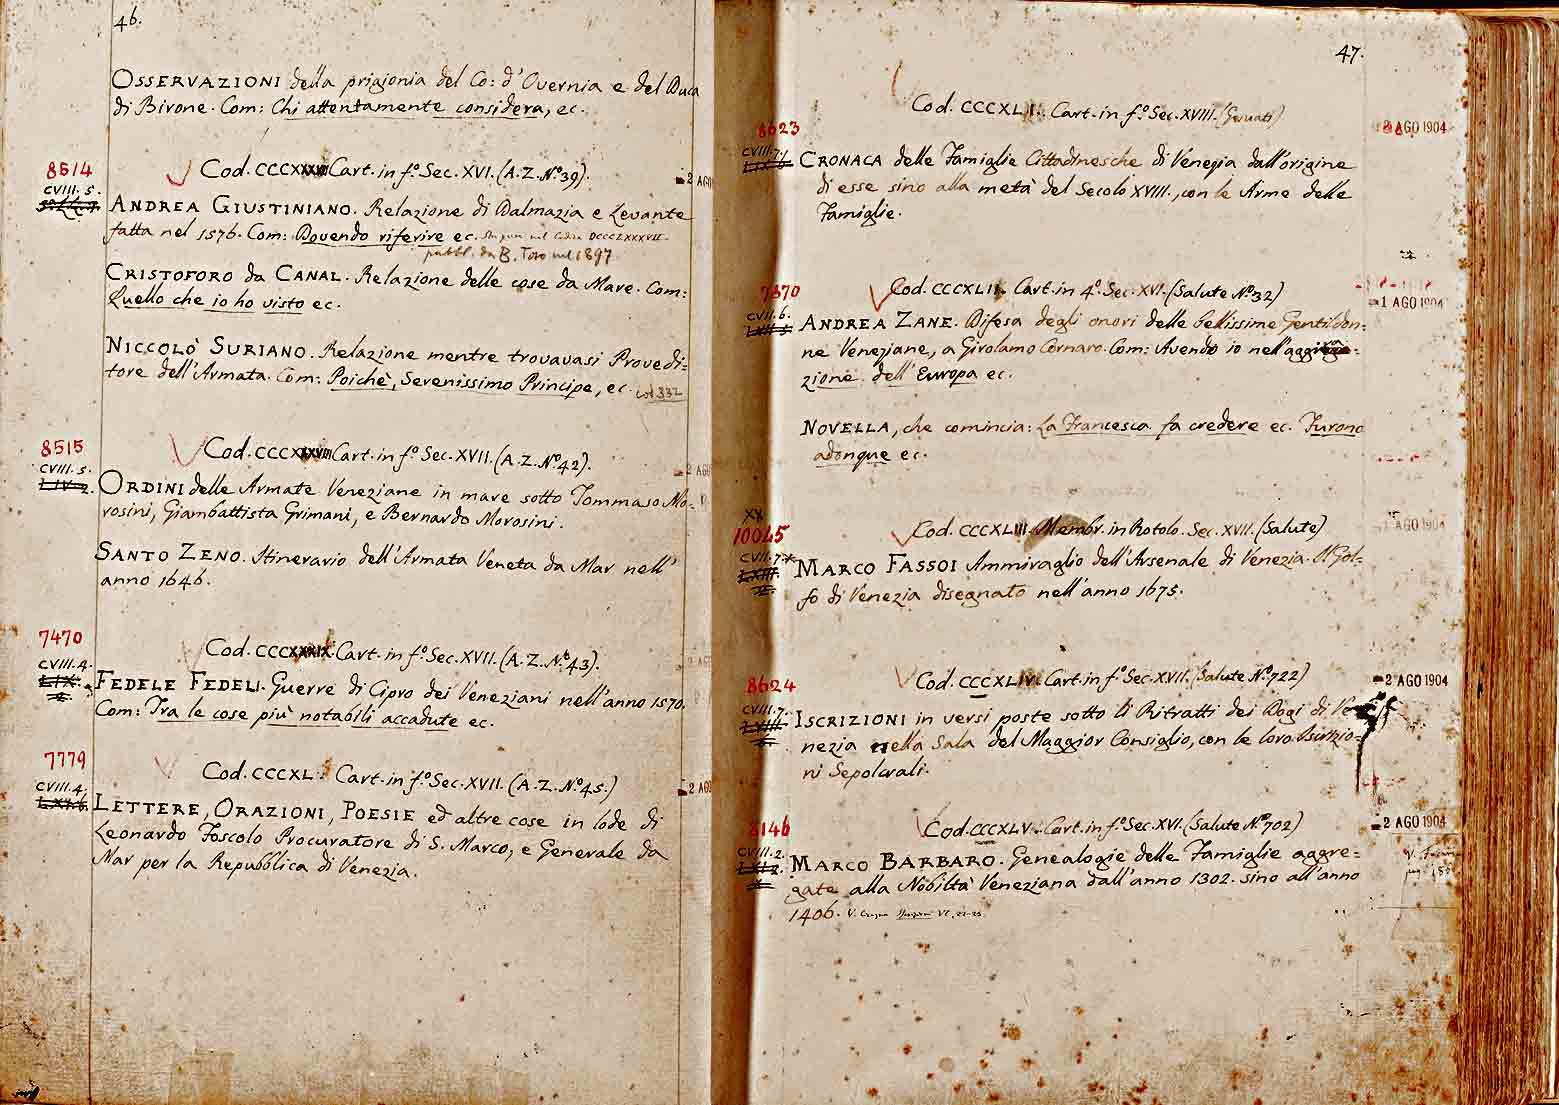 46.
OSSERVAZIONI della prigionia del Co: d'Overnia e del Duca
di Birone. Com: Chi attentamente considera, ec.
8514
Cod. CCCXXXVII Cart. in f.º Sec. XVI. (A. Z. Nº. 39).
2 AGO
CVIII. 5.
ANDREA GIUSTINIANO. Relazione di Dalmazia e Levante
fatta nel 1576. Com: Dovendo riferire ec. nel Codice DCCCLXXXVII.
pubbl. da B. Toro nel 1897
CRISTOFORO da CANAL. Relazione delle cose da Mare. Com:
Quello che io ho visto ec.
NICCOLÒ SURIANO. Relazione mentre trovavasi Provedi-
tore dell'Armata. Com: Poichè, Serenissimo Principe, ec. cod 332
8515
Cod. CCCXXXVIII Cart. in f.º Sec. XVII. (A. Z. Nº. 42).
2 AGO
CVIII. 5.
LIV. 2.
ORDINI delle Armate Veneziane in mare sotto Tommaso Mo-
rosini, Giambattista Grimani, e Bernardo Morosini.
SANTO ZENO. Itinerario dell'Armata Veneta da Mar nell'
anno 1646.
7470
Cod. CCCXXXIX. Cart. in f.º Sec. XVII. (A. Z. Nº. 43).
2 AGO
CVIII. 4.
LIX.
FEDELE FEDELI. Guerre di Cipro dei Veneziani nell'anno 1570.
Com: Tra le cose più notabili accadute ec.
7779
Cod. CCCXL. Cart. in f.º Sec. XVII. (A. Z. Nº. 45.)
2 AGO
CVIII. 4.
LETTERE, ORAZIONI, POESIE ed altre cose in lode di
Leonardo Foscolo Procuratore di S. Marco, e Generale da
Mar per la Repubblica di Venezia.
47.
Cod. CCCXLI. Cart. in f.º Sec. XVIII. (Gervati)
8623
2 AGO 1904
CVIII. 7.
CRONACA delle Famiglie Cittadinesche di Venezia dall'origine
di esse sino alla metà del Secolo XVIII., con le Arme delle
Famiglie.
7370
Cod. CCCXLII. Cart. in 4º. Sec. XVI. (Salute Nº. 32)
1 AGO 1904
CVII. 6.
ANDREA ZANE. Difesa degli onori delle bellissime Gentildon-
ne Veneziane, a Girolamo Cornaro. Com: Avendo io nell'aggi
zione dell'Europa ec.
NOVELLA, che comincia: La Francesca fa credere ec. Furono
adonque ec.
XX
10045
Cod. CCCXLIII. Membr. in Rotolo. Sec. XVII. (Salute)
AGO 1904
CVII. 7.*
LXIII.
MARCO FASSOI Ammiraglio dell'Arsenale di Venezia. Il Gol-
fo di Venezia disegnato nell'anno 1675.
8624
Cod. CCCXLIV. Cart. in f.º Sec. XVII. (Salute Nº. 722)
2 AGO 1904
CVIII. 7.
LVIII.
ISCRIZIONI in versi poste sotto li Ritratti dei Dogi di Ve-
nezia nella Sala del Maggior Consiglio, con le loro Iscrizio-
ni Sepolcrali.
8146
Cod. CCCXLV. Cart. in f.º Sec. XVI. (Salute Nº. 702)
2 AGO 1904
CVIII. 2.
MARCO BARBARO. Genealogie delle Famiglie aggre-
gate alla Nobiltà Veneziana dall'anno 1302. sino all'anno
1406. VI, 22-23